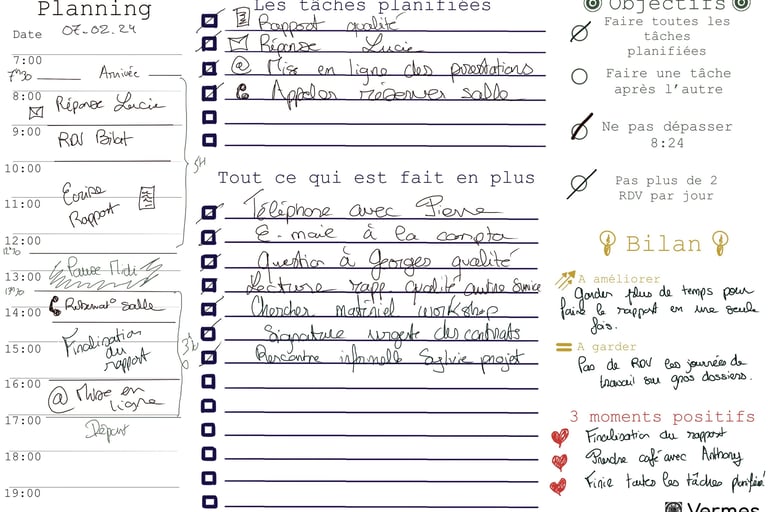 Planning
Date 07.02.24
7:00
7h30 Arrivée
8:00
Réponse Lucie
9:00
RDV Bilat
10:00
5H
Ecrire
11:00
Rapport
12:00
12h30
Pause Midi
13:00
13h30
Réservat° salle
14:00
Finalisation
du
rapport
15:00
16:00
@ Mise en
ligne
17:00
Départ
18:00
19:00
Les tâches planifiées
Rapport qualité
Réponse Lucie
@ Mise en ligne des prestations
Appeler réserver salle
Tout ce qui est fait en plus
Téléphone avec Pierre
E-mail à la compta
Question à Georges qualité
Lecture rapp. qualité autre service
Chercher matériel workshop
Signature urgente des contrats
Rencontre informelle Sylvie projet
Objectifs
Faire toutes les
tâches
planifiées
Faire une tâche
après l'autre
Ne pas dépasser
8:24
Pas plus de 2
RDV par jour
Bilan
A améliorer
Garder plus de temps pour
faire le rapport en une seule
fois.
A garder
Pas de RDV les journées de
travail sur gros dossiers.
3 moments positifs
Finalisation du rapport
Prendre café avec Anthony
Finir toutes les tâches planifiées
Vermes